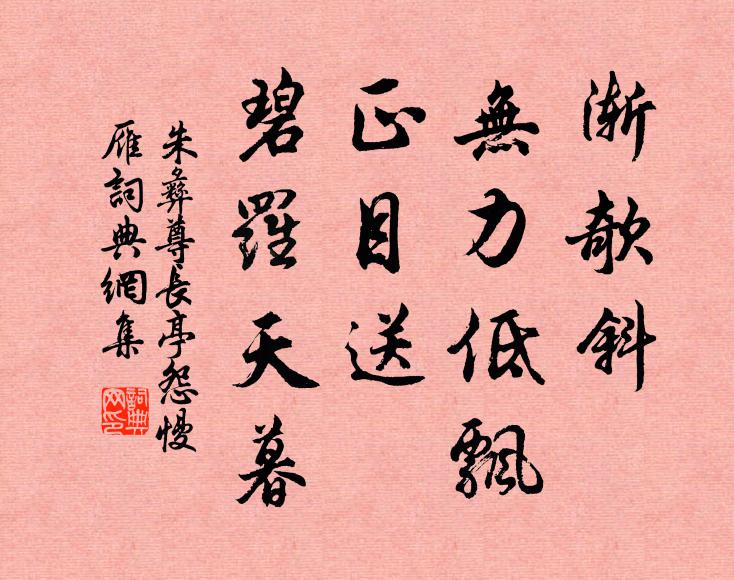 漸欹斜
無力低飄
正目送
碧羅天暮
朱彝尊長亭怨慢
雁詞典網集
詞典
网印